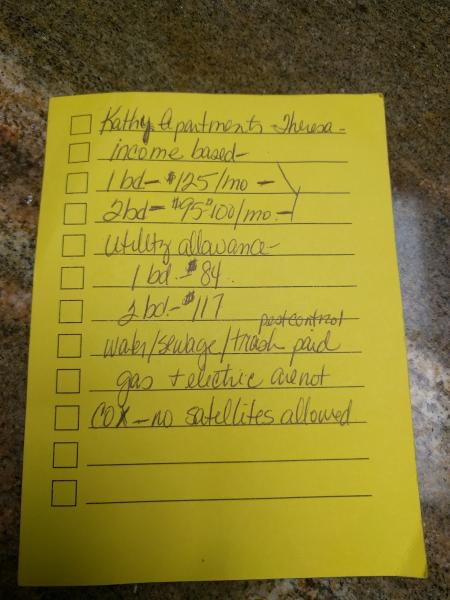 Kathy Apartments - Theresa -
income based -
1 bd - $125/mo -
2 bd - $95-$100/mo. -
utility allowance -
1 bd. - $84
2 bd. - $117
pest control
water/sewage/trash paid
gas + electric are not
COX - no satellites allowed